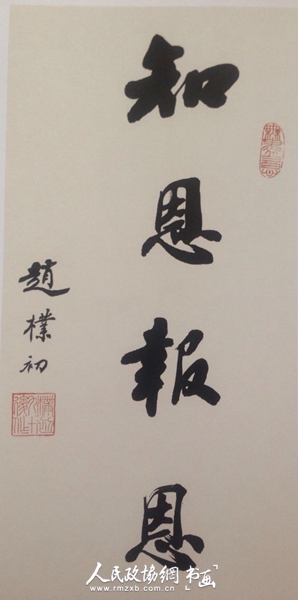 知恩報恩
趙樸初
人民政協網书画
www.rmzxb.com.cn